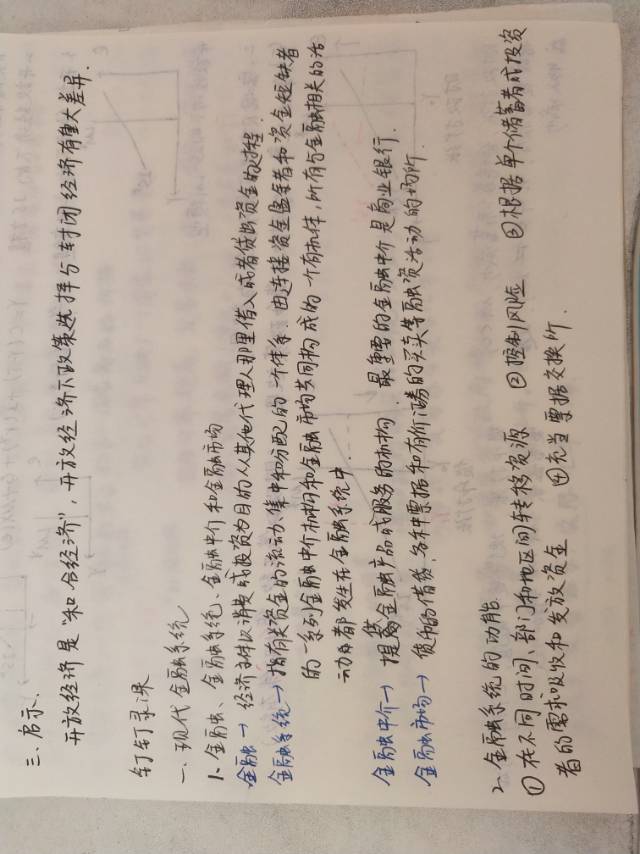 三、启示.
开放经济是“和合经济”，开放经济下政策选择与封闭经济有重大差异.
钉钉录课
一、现代金融系统
1、金融、金融系统、金融中介和金融市场
金融→ 经济主体以消费或投资为目的从其他代理人那里借入或者贷出资金的过程.
金融系统→ 指有关资金的流动、集中和分配的一个体系.由连接资金盈余者和资金短缺者
的一系列金融中介机构和金融市场共同构成的一个有机体,所有与金融相关的活
动都发生在金融系统中.
金融中介→ 提供金融产品或服务的机构 最重要的金融中介是商业银行.
金融市场→ 货币的借贷,各种票据和有价证券的买卖等融资活动的场所.
2.金融系统的功能
①在不同时间、部门和地区间转移资源 ②控制风险 ③根据单个储蓄者或投资
者的需求吸收和发放资金 ④充当票据交换所.